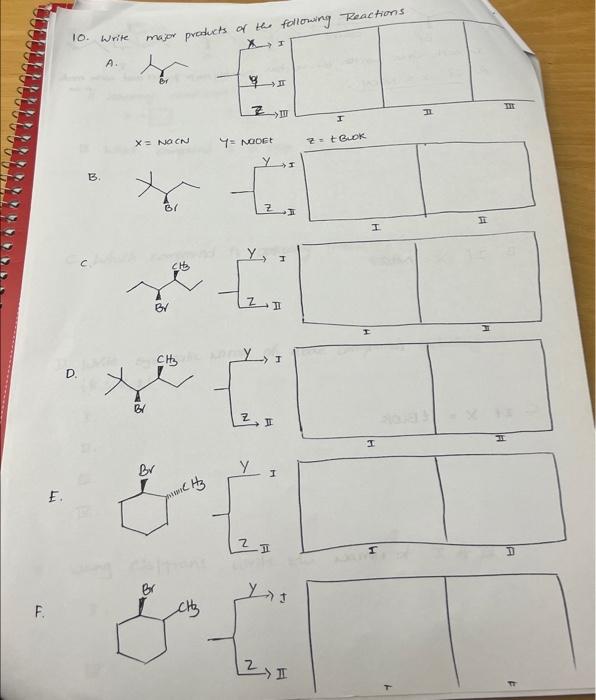 10. Write major products of the following Reactions
A.
Br
X → I
y → II
Z → III
I
II
III
X = NaCN Y = NaOEt Z = tBuOK
B.
Br
Y → I
Z → II
I
II
C.
CH3
Br
Y → I
Z → II
I
II
D.
CH3
Br
Y → I
Z → II
I
II
E.
Br
CH3
Y I
Z II
I
II
F.
Br
CH3
Y → I
Z → II
I
II